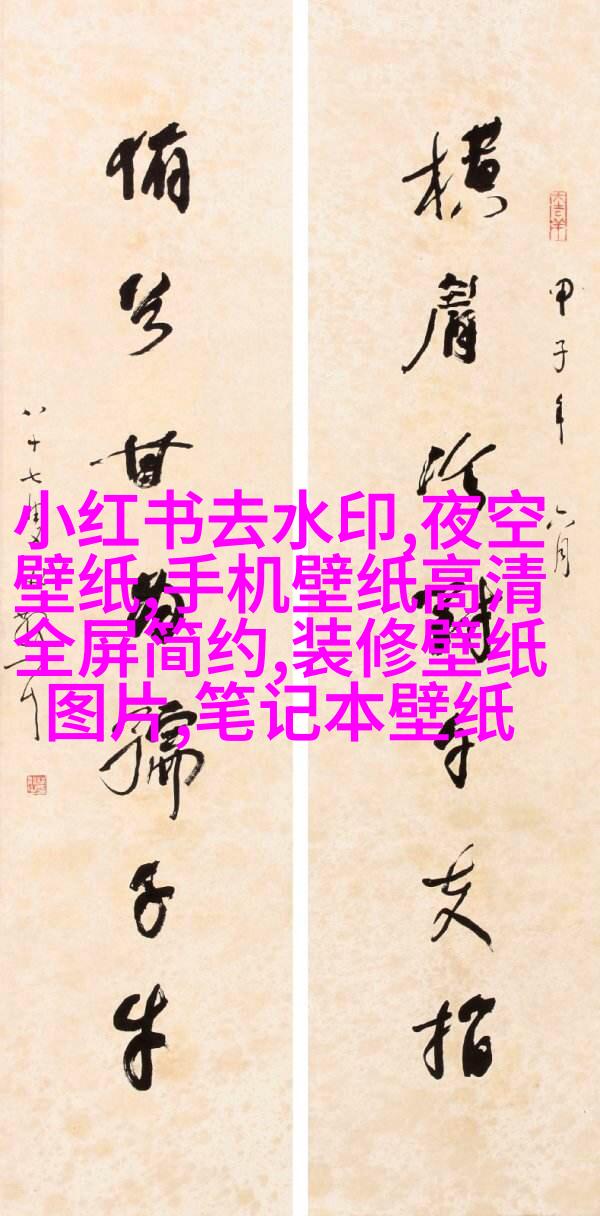 大吉羊
甲子年六月
横眉冷對千夫指
俯首甘為孺子牛
八十七
小红书去水印,夜空
壁纸,手机壁纸高清
全屏简约,装修壁纸
图片,笔记本壁纸